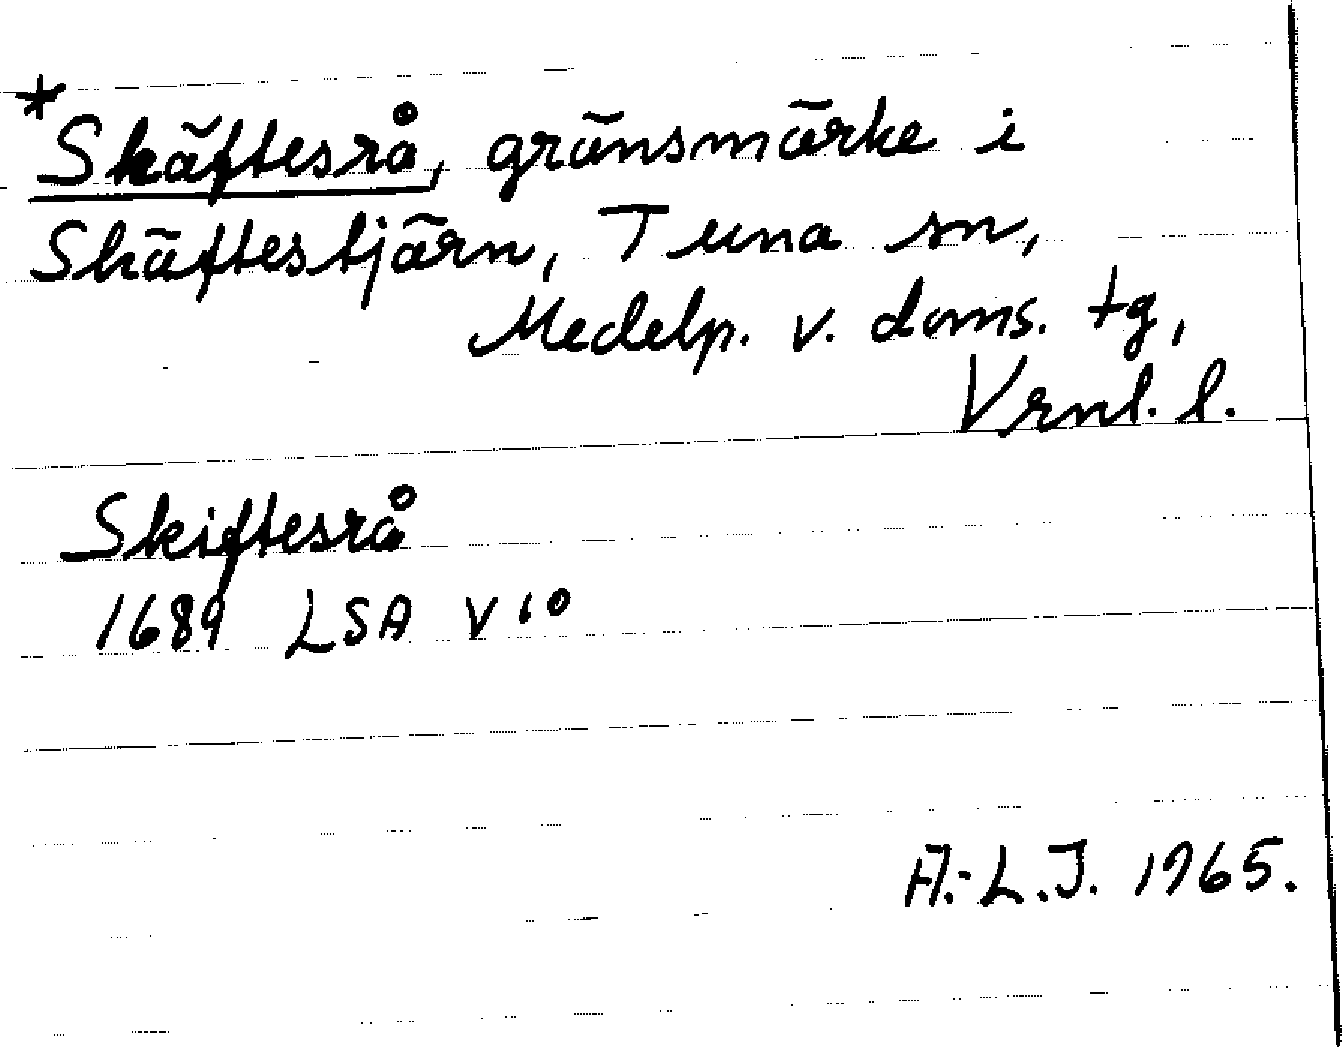 *Skäftesrå, gränsmärke i
Skäftestjärn, Tuna sn,
Medelp. v. doms. tg,
Vrnl. l.
Skiftesrå
1689 LSA V 10
A.-L.J. 1965.